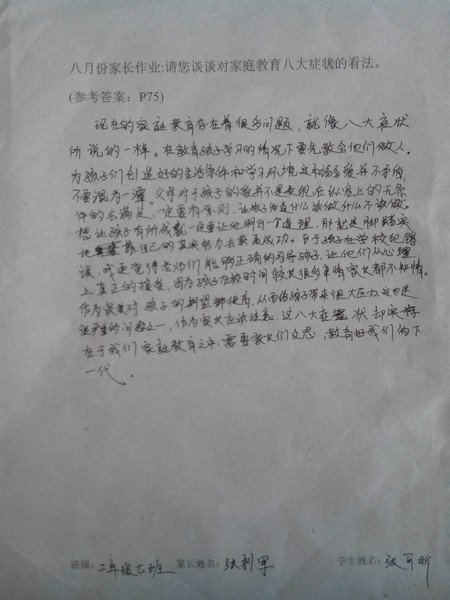 八月份家长作业:请您谈谈对家庭教育八大症状的看法。
(参考答案：P75)
现在的家庭教育存在着很多问题，就像八大症状
所说的一样。在教育孩子学习的情况下要先教会他们做人。
为孩子们创造好的生活条件和学习环境这和溺爱并不矛盾
不要混为一潭。父母对于孩子的爱并不是表现在从爱上的无条
件的去满足，一定要有原则，让孩子知道什么该做什么不该做。
想让孩子有所成就一定要让他明白一个道理，那就是脚踏实
地靠自己的真实努力去获取成功。至于孩子在学校犯错
误，我更觉得老师们能够正确的引导孩子，让他们从心理
上真正的接受，因为孩子在校时间较长很多事情家长都不知情。
作为家长对孩子的期望都很高，从而给孩子带来很大压力，这也是
很严重的问题之一，作为家长应该注意。这八大症状却实存
在于我们家庭教育之中，需要家长们反思，教育好我们的下
一代。
班级：二年级七班 家长姓名：张利军 学生姓名：张可昕